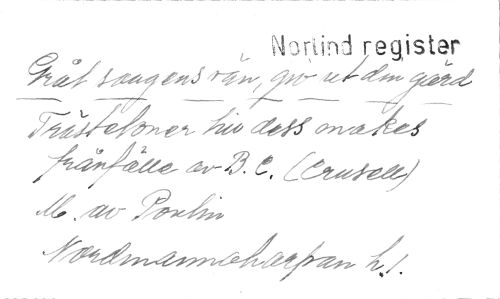 Norlind register
Gråt sångens vän, giv ut din gärd
Tröstetoner hiv dess makes
frånfälle av B. C. (Crusell)
M. av Poulin
Nordmannaharpan h. 1.